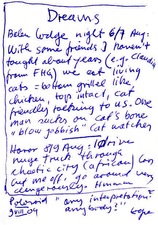 Dreams
Belen Lodge night 6/7 Aug:
With some friends I haven't
thought about years (e.g. Claudia
from FHG) we eat living
cats = bottom grilled like
chicken, top intact, cat
friendly talking to us. One
man sucks on cat's bone
"blow jobbish" Cat watches
Honor 8/9 Aug: I drive
huge truck through
chaotic city (African) Car
cut me off, go around very
dangerously. Hmmm
Poloroid "any interpretation?
anybody?"